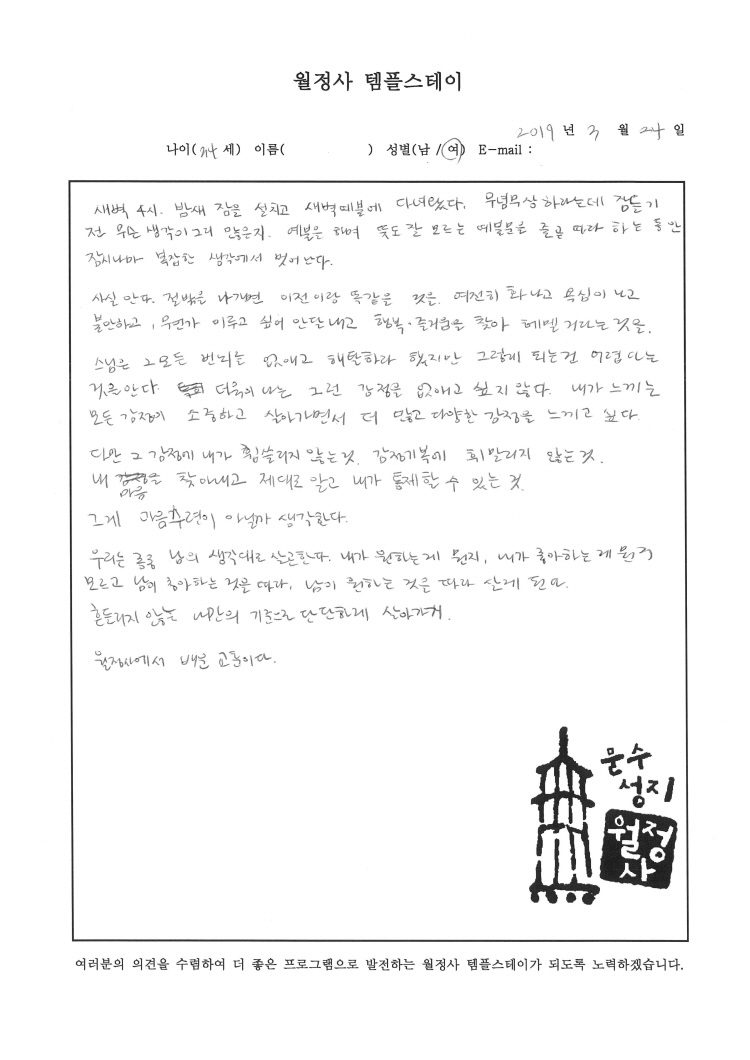 월정사 템플스테이
2019 년 3 월 24 일
나이(34 세) 이름( ) 성별(남 /여) E-mail :
새벽 4시. 밤새 잠을 설치고 새벽예불에 다녀왔다. 무념무상 하라는데 잠들기
전 무슨 생각이 그리 많은지. 예불은 하며 뜻도 잘 모르는 예불문을 줄곧 따라 하는 동안
잠시나마 복잡한 생각에서 벗어난다.
사실 안다. 절밖을 나가면 이전이랑 똑같을 것을. 여전히 화나고 욕심이 나고
불안하고, 무언가 이루고 싶어 안달내고 행복·즐거움을 찾아 헤멜 거라는 것을.
스님은 그 모든 번뇌를 없애고 해탈하라 했지만 그렇게 되는건 어렵다는
것을 안다. 더욱이 나는 그런 감정을 없애고 싶지 않다. 내가 느끼는
모든 감정이 소중하고 살아가면서 더 많고 다양한 감정을 느끼고 싶다.
다만 그 감정에 내가 휩쓸리지 않는 것, 감정기복에 휘말리지 않는 것.
내 마음을 찾아내고 제대로 알고 내가 통제할 수 있는 것.
그게 마음수련이 아닐까 생각한다.
우리는 종종 남의 생각대로 살곤한다. 내가 원하는게 뭔지, 내가 좋아하는 게 뭔지
모르고 남이 좋아하는 것을 따라, 남이 원하는 것을 따라 살게 된다.
흔들리지 않는 나만의 기준으로 단단하게 살아가기.
월정사에서 배운 교훈이다.
문수
성지
월정
사
여러분의 의견을 수렴하여 더 좋은 프로그램으로 발전하는 월정사 템플스테이가 되도록 노력하겠습니다.